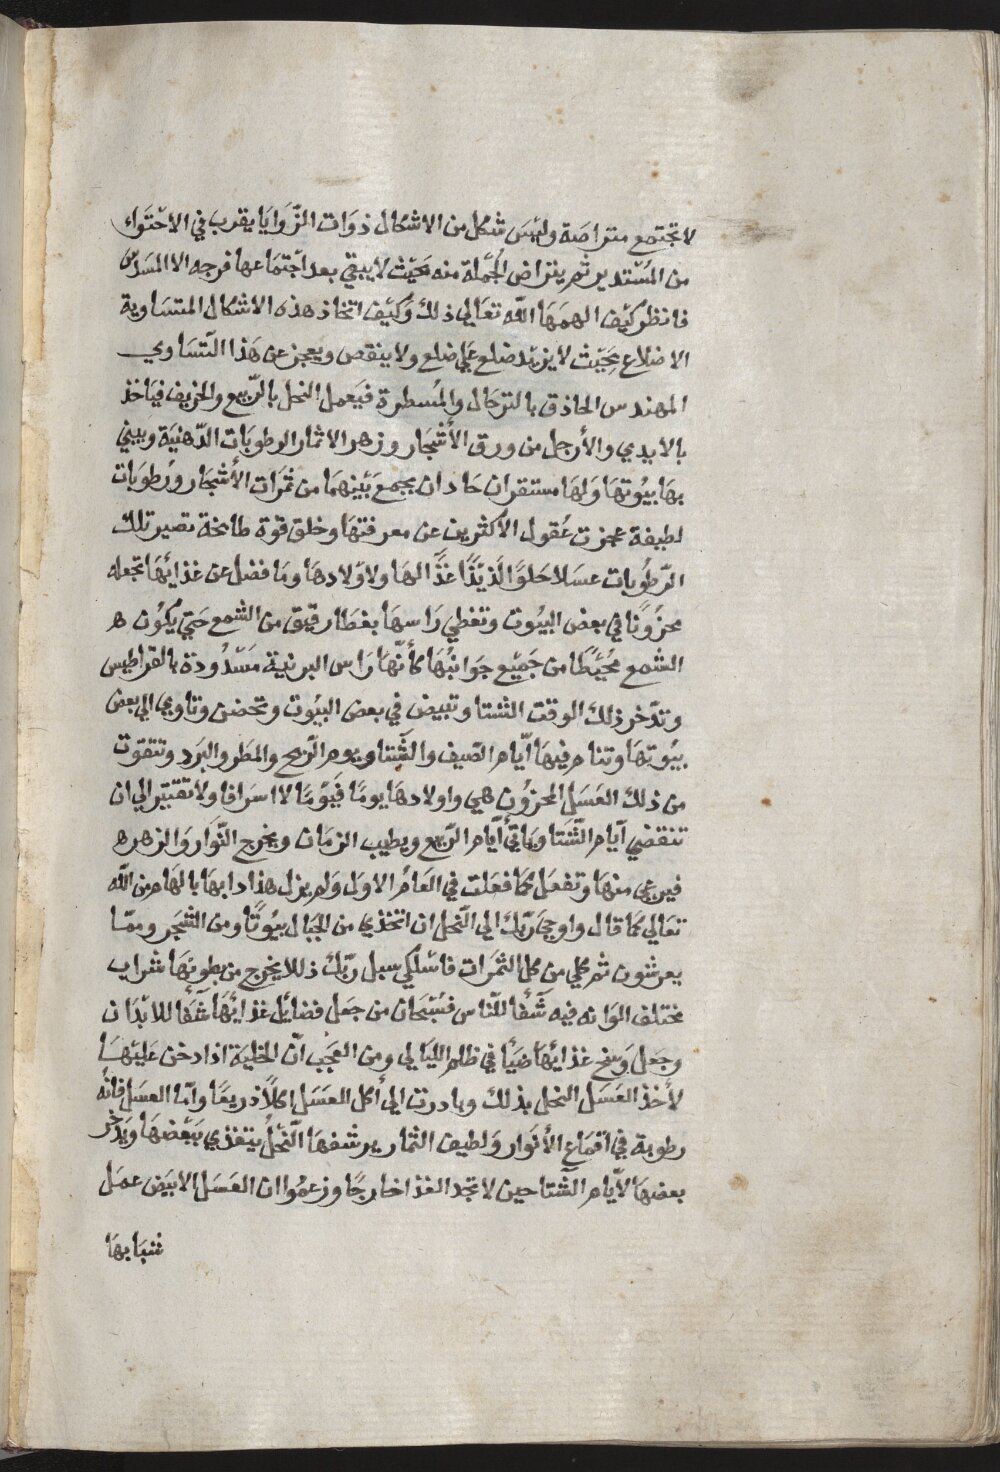 لا تجتمع متراصة وليس شكل من الاشكال ذوات الزوايا يقرب في الاحتواء
من المستدير ثم يتراض الجملة منه بحيث لا يبقي بعد اجتماعها فرجه الا المسدس
فانظر كيف الهمها الله تعالي ذلك وكيف اتخاذ هذه الاشكال المتساوية
الاضلاع بحيث لا يزيد ضلع علي ضلع ولا ينقص ويعجز عن هذا التساوي
المهندس الحاذق بالترجال والمسطرة فيعمل النحل بالربيع والخريف فياخذ
بالايدي والأرجل من ورق الأشجار وزهر الاثمار الرطوبات الدهنية ويبني
بها بيوتها ولها مستقران حادان يجمع بينهما من ثمرات الأشجار ورطوبات
لطيفة عجزت عقول الأكثرين عن معرفتها وخلق قوة طابخة تصير تلك
الرطوبات عسلا حلوا لذيذا غذا لها ولاولادها وما فضل عن غذائها تجعله
مخزونا في بعض البيوت وتغطي راسها بغطا رقيق من الشمع حتي يكون ه
الشمع محيطا من جميع جوانبها كأنها راس البرنية مسدودة بالقراطيس
وتدخر ذلك الوقت الشتا وتبيض في بعض البيوت وتحضن وتاوي الي بعض
بيوتها وتنام فيها ايام الصيف والشتا ويوم الريح والمطر والبرد وتتقوت
من ذلك العسل المخزون هي واولادها يوما فيوما لا اسرافا ولا تقتيرا الي ان
تنقضي ايام الشتا وياتي ايام الربيع ويطيب الزمان ويخرج النوار والزهره
فيرعي منها وتفعل كما فعلت في العام الاول ولم يزل هذا دابها بالهام من الله
تعالي كما قال واوحي ربك الي النحل ان اتخذي من الجبال بيوتا ومن الشجر ومما
يعرشون ثم كلي من كل الثمرات فاسلكي سبل ربك ذللا يخرج من بطونها شراب
مختلف الوانه فيه شفا للناس فسبحان من جعل فضايل غذائها شفا للابدان
وجعل وسخ غذائها ضيا في ظلم الليالي ومن العجب ان الخلية اذا دخن عليها
لأخذ العسل النحل بذلك وبادرت الي أكل العسل اكلا ذريعا واما العسل فانه
رطوبة في اقماع الأنوار ولطيف الثمار يرشفها النحل يتغذي ببعضها ويدخر
بعضها لايام الشتا حين لا تجد الغذا خارجا وزعموا ان العسل الابيض عمل
شبابها